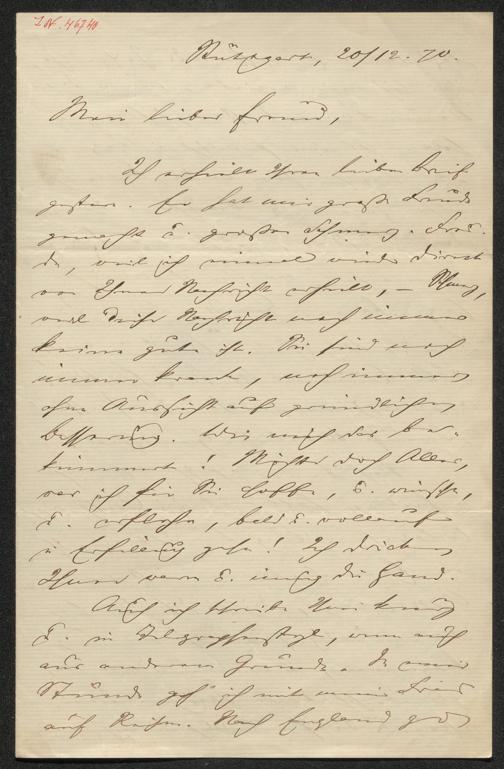 I.N. 46740
Stuttgart, 20/12. 70.
Mein lieber Freund,
Ich erhielt Ihren lieben Brief
gestern. Er hat mir große Freude
gemacht u. großen Schmerz. Freu-
de, weil ich einmal wieder direct
von Ihnen Nachricht erhielt, – Schmerz,
weil diese Nachricht noch immer
keine gute ist. Sie sind noch
immer krank, noch immer
ohne Aussicht auf gründliche
Besserung. Wie mich das be-
kümmert! Möchte doch Alles,
was ich für Sie hoffe, u. wünsche,
u. erflehe, bald u. vollauf
in Erfüllung gehn! Ich drücke
Ihnen warm u. innig die Hand.
Auch ich schreibe Ihnen kurz
u. im Telegraphenstyl, wenn auch
aus anderem Grunde. In einer
Stunde geh' ich mit meiner
auf Reisen. Nach England geht